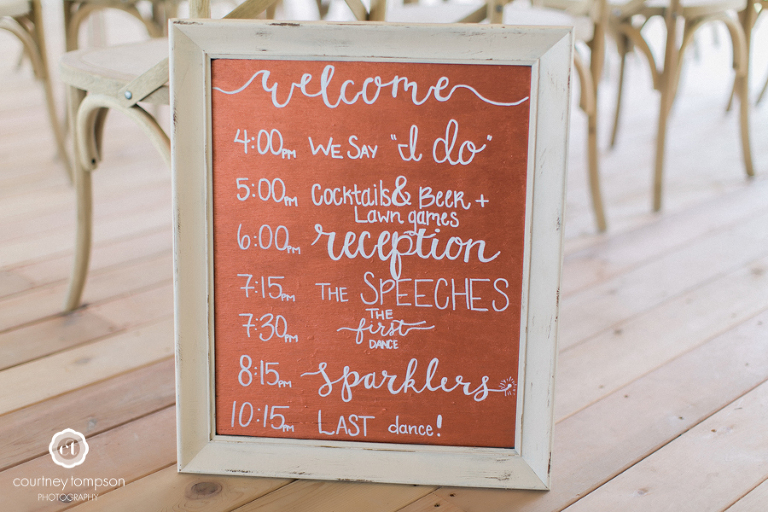 welcome
4:00PM WE SAY "I do"
5:00PM Cocktails & Beer +
Lawn games
6:00PM reception
7:15PM THE SPEECHES
7:30PM THE
first
DANCE
8:15PM sparklers
10:15PM LAST dance!
CT
courtney tompson
PHOTOGRAPHY